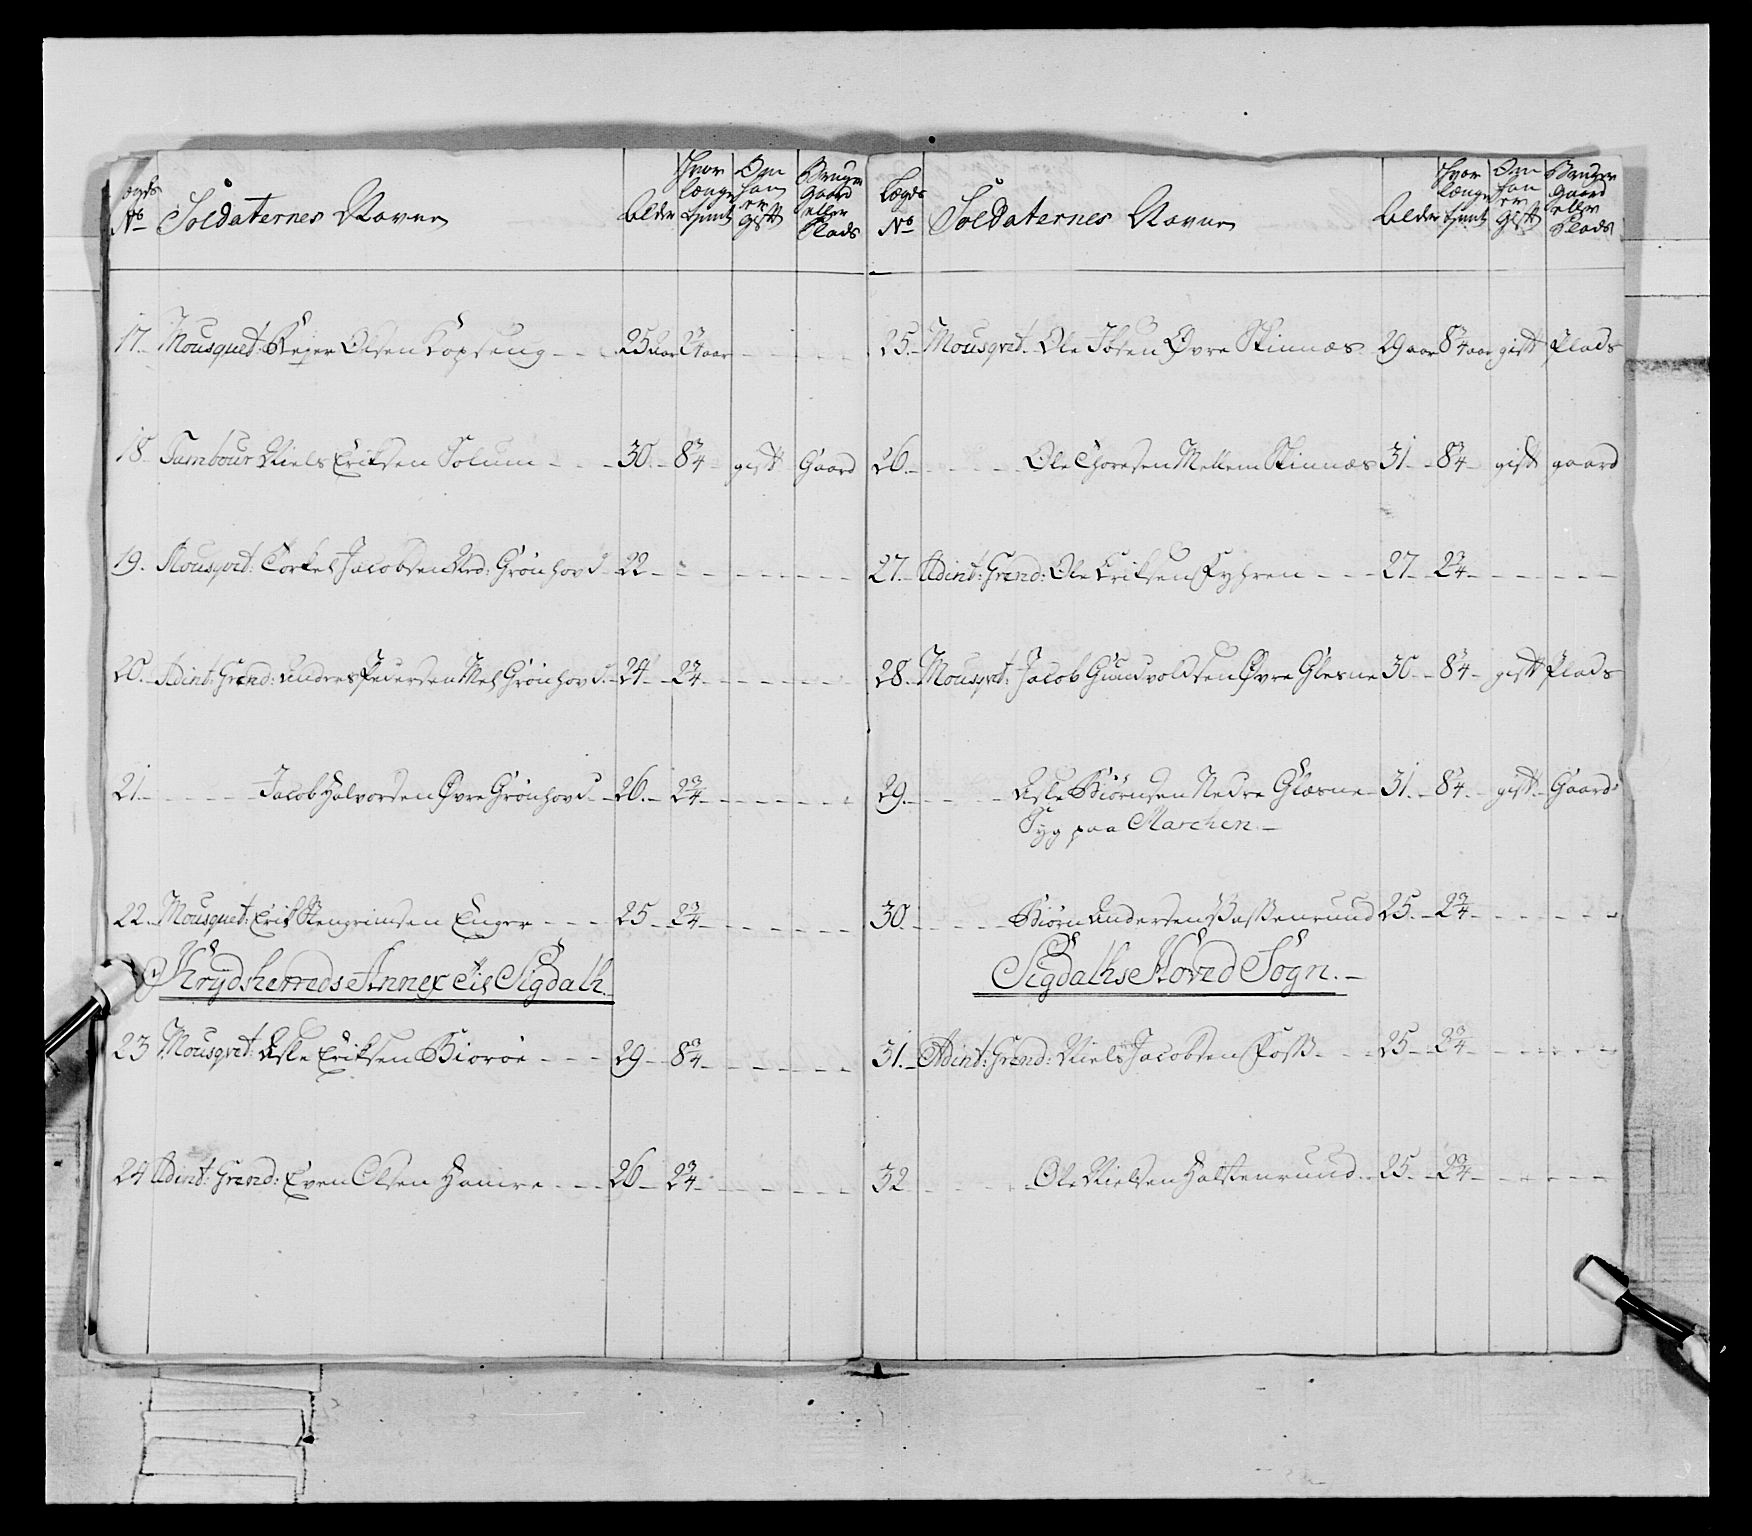 Lægds No Soldaternes Navne Alder Hvor længe tient Om han er Gift Bruger Gaard eller Plads
17. Mousquet: Olsen Kopseng 25 aar 2¾ aar
18. Tambour Niels Eriksen Solum 30. 8¾ gift Gaard
19. Mousqvet: Torkel Jacobsen Nrd: Grönhovd 22
20. Adint: Grend: Anders Pedersen Mel Grönhovd 24 2¾
21. Jacob Halvorsen Øvre Grönhovd 26. 2¾
22. Mousquet: Erik Stengrimsen Enger 25 2¾
Krydsherreds Annex til Sigdahl.
23 Mousqvet: Asle Eriksen Biöröe 29 8¾
24 Adint: Grend: Even Olsen Hamre 26 2¾
Lægds No Soldaternes Navne Alder Hvor længe tient Om han er Gift Bruger Gaard eller Plads
25. Mousqvet. Ole Ibsen Øvre Skinnæs 29 aar 8¾ aar gift Plads
26. Ole Thoresen Mellem Skinnæs 31 8¾ gift gaard
27. Adint: Grend: Ole Eriksen Fyhren 27 2¾
28. Mousqvet: Jacob Gundvoldsen Øvre Glesne 30 8¾ gift Plads
29. Asle Biörnsen Nedre Glæsne 31. 8¾ gift Gaard
Syg paa Marchen.
30. Biörn Andersen Bassenrund 25. 2¾
Sigdahls Hoved Sogn.
31. Adint: Grend: Niels Jacobsen Foss 25 2¾
32 Ole Nielsen Halstenrund 25 2¾